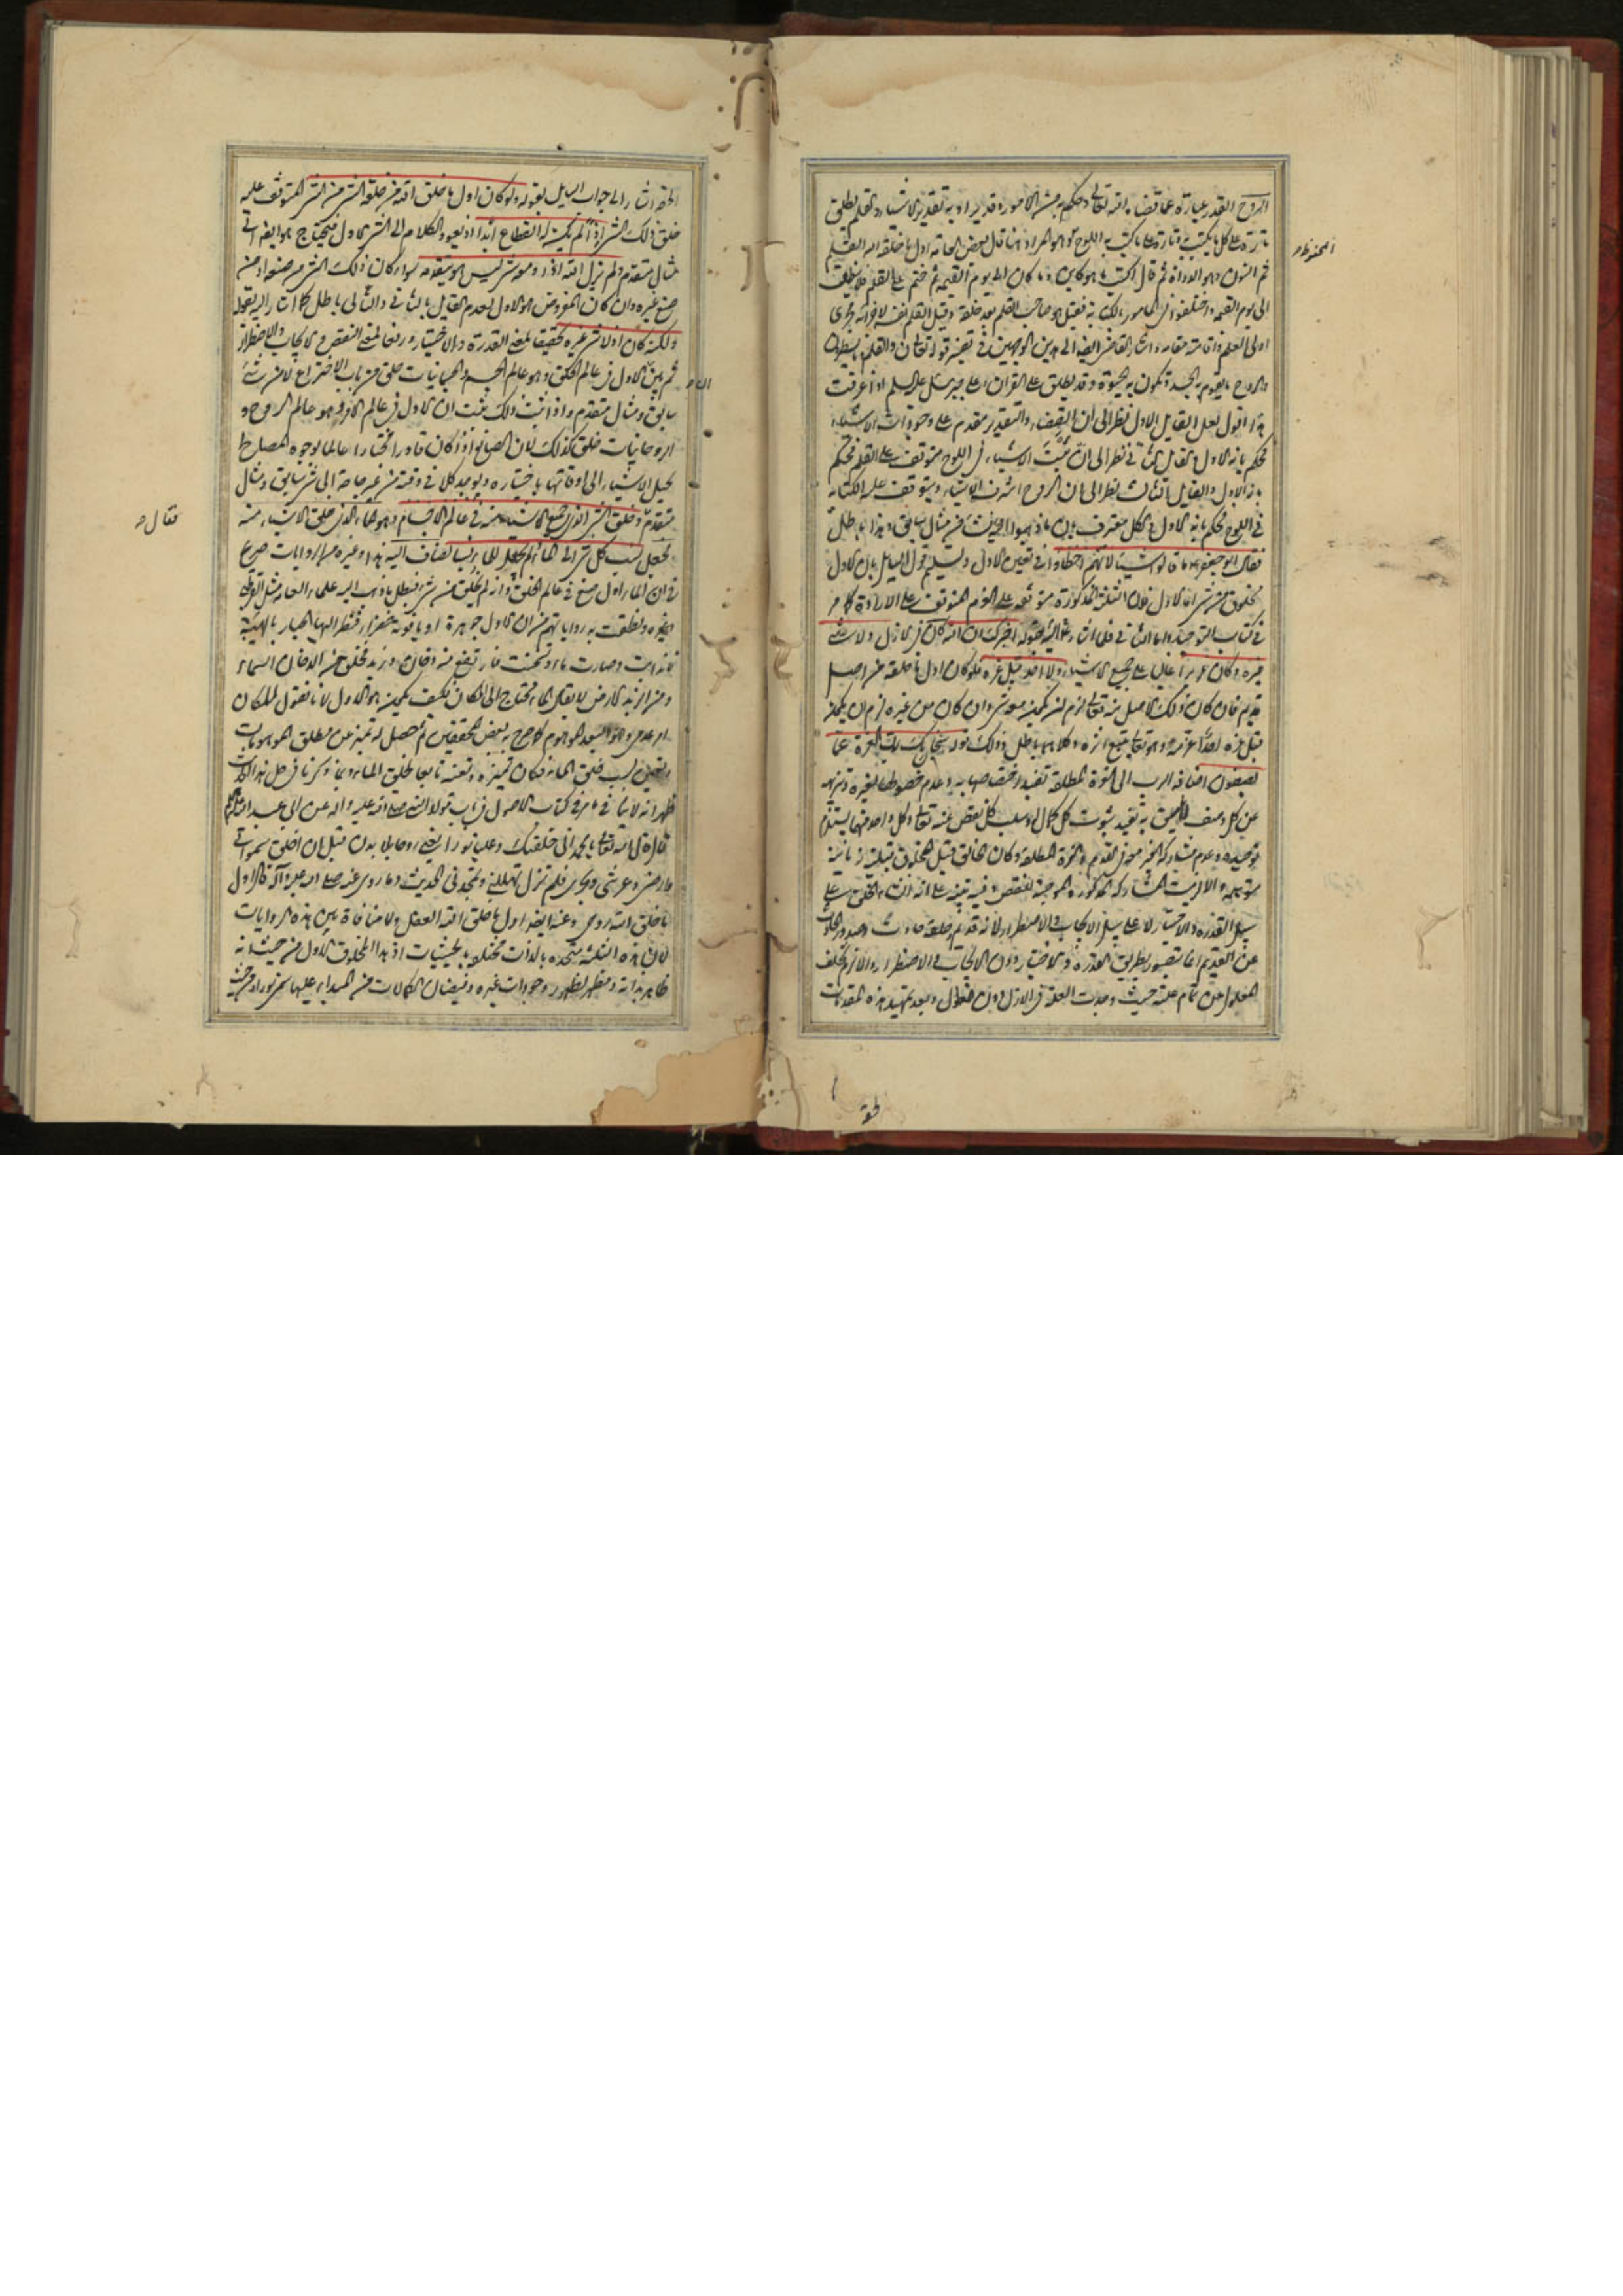 الروح القدر عبارة عما قضاه الله تعالى وحكم به من الامور وقد يراد به تقدير الاشياء والقلم يطلق
تارة على كل ما يكتب به وتارة على ما كتب به اللوح وهو المراد هنا قال بعض العامة اول ما خلقه الله القلم
المحفوظ
ثم النون وهو الدواة ثم قال اكتب ما هو كاين وما كان الى يوم القيمة ثم ختم على القلم فلا ينطق
الى يوم القيمة واختلفوا في المامور بالكتابة فقيل هو صاحب القلم بعد خلقه وقيل القلم نفسه لاجرائه مجرى
اولى العلم واقامته مقامه واشار القاضي ايضا الى هذين الوجهين في تفسير قوله تعالى ن والقلم وما يسطرون
والروح ما يقوم به الجسد وتكون به الحيوة وقد يطلق على القران وعلى جبرئيل عليه السلم اذا عرفت
هذا فاقول لعل القايل الاول نظر الى ان القضاء والتقدير مقدم على وجودات الاشياء
فحكم بانه الاول والقايل الثاني نظر الى ان ثبت الاشياء في اللوح متوقف على القلم فحكم
بانه الاول والقايل الثالث نظر الى ان الروح اشرف الاشياء ويتوقف عليه الكتابة
في اللوح فحكم بانه الاول والكل معترف بان ما ذهبوا اليه شئ من مثال سابق وهذا باطل
فقال ابو جعفر ع ما قالوا شيئا لانهم اخطاوا في تعيين الاول وتسليم قول السايل بان الاول
مخلوق من شئ اما الاول فلان الثلثة المذكورة متوقفة على العزم المتوقف على الارادة كما مر
في كتاب التوحيد واما الثاني فلما اشار اليه بقوله اخبرك ان الله كان في الازل ولا شئ
غيره وكان عزيزا غالبا على جميع الاشياء ولا احد قبل عزه فلو كان اول ما خلقه من اصل
قديم فان كان ذلك الاصل منه تعالى لزم ان يكون معه شئ وان كان من غيره لزم ان يكون
قبل عزه احد اعزه وهو تعالى تبع اثره وكلاهما باطل وذلك قوله سبحان ربك رب العزة عما
يصفون اضافة الرب الى العزة المطلقة تفيد اختصاصها به وعدم حصولها لغيره وتنزيهه
عن كل وصف لا يليق به تفيد ثبوت كل كمال له وسلب كل نقص عنه تعالى وكل واحد منهما يستلزم
توحيده وعدم مشاركة الغير معه في القدم والعزة المطلقة وكان الخالق قبل المخلوق قبلية زمانية
سبيل القدرة والاختيار لا على سبيل الايجاب والاضطرار لانه قديم وخلقه حادث وصدور الحادث
عن القديم انما يتصور بطريق القدرة والاختيار دون الايجاب والاضطرار والا لزم تخلف
المعلول عن تمام علته حيث وجدت العلة في الازل دون المعلول وبعد تمهيد هذه المقدمات
الحقة اشار الى جواب السايل بقوله ولو كان اول ما خلق الله من خلقه الشئ من الشئ المتوقف عليه
خلق ذلك الشئ اذا لم يكن له انقطاع ابدا اذ يعود الكلام الى الشئ الاول فيحتاج هو ايضا الى
مثال متقدم ولم يزل الله اذا ومعه شئ ليس هو يتقدمه سواء كان ذلك الشئ من صنعه او من
صنع غيره وان كان المفروض هو الاول لعدم القايل بالثاني والتالي باطل كما اشار اليه بقوله
ولكنه كان اذ لا شئ غيره تحقيقا لمعنى القدرة والاختيار ورفعا لمعنى النقص والايجاب والاضطرار
ثم بين الاول في عالم الخلق وهو عالم الجسم والجسمانيات خلق من باب الاختراع لا من شئ
سابق ومثال متقدم واذا ثبت ذلك ثبت ان الاول في عالم الامر وهو عالم الروح و
الروحانيات خلق كذلك لان الصانع اذا كان قادرا مختارا عالما بوجوه المصالح
يحيل الاشياء الى اوقاتها باختياره ويوجد كلا في وقته من غير حاجة الى شئ سابق ومثال
متقدم وخلق الشئ الذي جميع الاشياء منه في عالم الاجسام وهو الماء الذي خلق الاشياء منه
فقال
فجعل نسب كل شئ الى الماء ولم يجعل للماء نسبا يضاف اليه هذا وغيره من الروايات صريح
في ان الماء اول صنع في عالم الخلق وانه لم يخلق من شئ فبطل ما ذهب اليه علماء العامة مثل القرطبي
وغيره ونطقت به رواياتهم من ان الاول جوهرة او ياقوتة خضراء فنظر اليها الجبار بالهيبة
فذابت وصارت ماء وتسخنت فارتفع منه دخان وزبد فخلق من الدخان السماء
ومن الزبد الارض لا يقال الماء محتاج الى المكان فكيف يكون هو الاول لانا نقول المكان
امر عدمي وهو البعد الموهوم كما صرح به بعض المحققين ثم حصل له تميز عن مطلق الموهومات
وتعين بسبب خلق الماء فكان تميزه وتعينه تابعا لخلق الماء وبما ذكرنا في حل هذا الحديث
ظهر انه لا ينافي ما مر في كتاب الاصول في باب مولد النبي صلى الله عليه واله عن ابي عبد الله عليه السلم
قال قال الله تعالى يا محمد اني خلقتك وعليا نورا يعني روحا بلا بدن قبل ان اخلق سمواتي
وارضي وعرشي وبحري فلم تزل تهللني وتمجدني الحديث وما روي عنه صلى الله عليه وآله قال اول
ما خلق الله روحي وعنه ايضا اول ما خلق الله العقل ولا منافاة بين هذه الروايات
لان هذه الثلثة متحدة بالذات مختلفة بالحيثيات اذ هذا المخلوق الاول من حيث انه
ظاهر بذاته ومظهر لظهور وجودات غيره وفيضان الكمالات من المبداء عليها سمي نورا ومن حيث